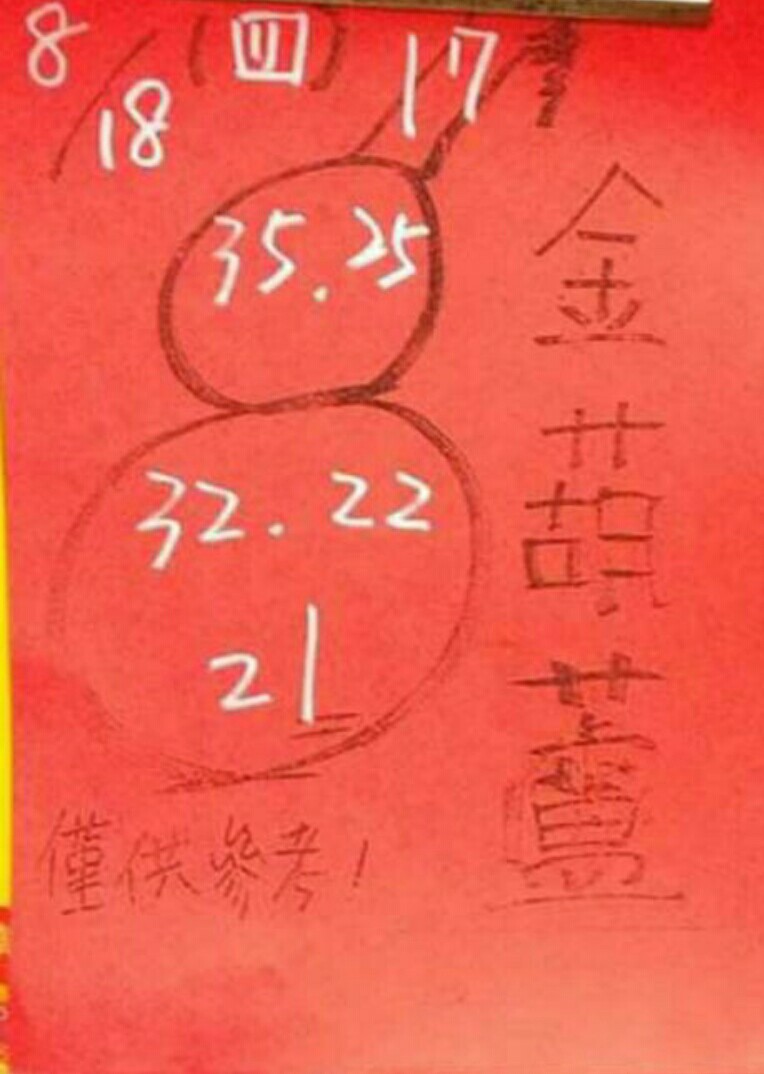 8/18 (四) 17
35.25
32.22
21
金葫蘆
僅供參考!